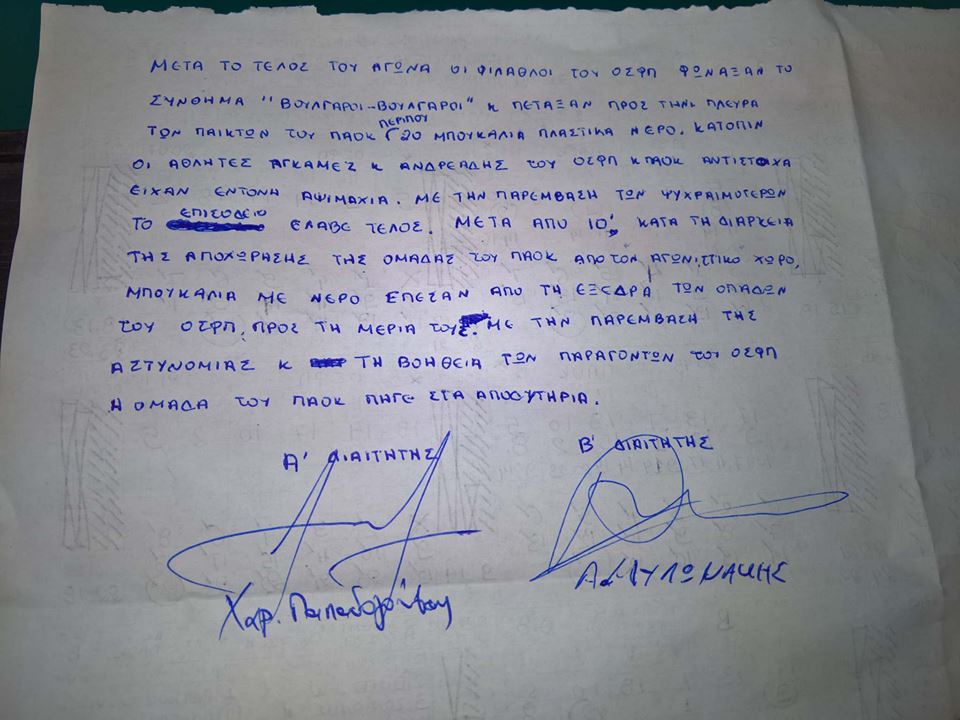 ΜΕΤΑ ΤΟ ΤΕΛΟΣ ΤΟΥ ΑΓΩΝΑ ΟΙ ΦΙΛΑΘΛΟΙ ΤΟΥ ΟΣΦΠ ΦΩΝΑΞΑΝ ΤΟ
ΣΥΝΘΗΜΑ "ΒΟΥΛΓΑΡΟΙ-ΒΟΥΛΓΑΡΟΙ" Κ ΠΕΤΑΞΑΝ ΠΡΟΣ ΤΗΝ ΠΛΕΥΡΑ
ΤΩΝ ΠΑΙΚΤΩΝ ΤΟΥ ΠΑΟΚ ΠΕΡΙΠΟΥ 20 ΜΠΟΥΚΑΛΙΑ ΠΛΑΣΤΙΚΑ ΝΕΡΟ. ΚΑΤΟΠΙΝ
ΟΙ ΑΘΛΗΤΕΣ ΑΓΚΑΜΕΖ Κ ΑΝΔΡΕΑΔΗΣ ΤΟΥ ΟΣΦΠ Κ ΠΑΟΚ ΑΝΤΙΣΤΟΙΧΑ
ΕΙΧΑΝ ΕΝΤΟΝΗ ΑΨΙΜΑΧΙΑ. ΜΕ ΤΗΝ ΠΑΡΕΜΒΑΣΗ ΤΩΝ ΨΥΧΡΑΙΜΟΤΕΡΩΝ
ΤΟ ΕΠΙΣΟΔΕΙΟ ΕΛΑΒΕ ΤΕΛΟΣ. ΜΕΤΑ ΑΠΟ 10', ΚΑΤΑ ΤΗ ΔΙΑΡΚΕΙΑ
ΤΗΣ ΑΠΟΧΩΡΑΣΗΣ ΤΗΣ ΟΜΑΔΑΣ ΤΟΥ ΠΑΟΚ ΑΠΟ ΤΟΝ ΑΓΩΝΙΣΤΙΚΟ ΧΩΡΟ,
ΜΠΟΥΚΑΛΙΑ ΜΕ ΝΕΡΟ ΕΠΕΣΑΝ ΑΠΟ ΤΗ ΕΞΕΔΡΑ ΤΩΝ ΟΠΑΔΩΝ
ΤΟΥ ΟΣΦΠ, ΠΡΟΣ ΤΗ ΜΕΡΙΑ ΤΟΥΣ. ΜΕ ΤΗΝ ΠΑΡΕΜΒΑΣΗ ΤΗΣ
ΑΣΤΥΝΟΜΙΑΣ Κ ΤΗ ΒΟΗΘΕΙΑ ΤΩΝ ΠΑΡΑΓΟΝΤΩΝ ΤΟΥ ΟΣΦΠ
Η ΟΜΑΔΑ ΤΟΥ ΠΑΟΚ ΠΗΓΕ ΣΤΑ ΑΠΟΔΥΤΗΡΙΑ.
Α' ΔΙΑΙΤΗΤΗΣ
Β' ΔΙΑΙΤΗΤΗΣ
Χαρ.